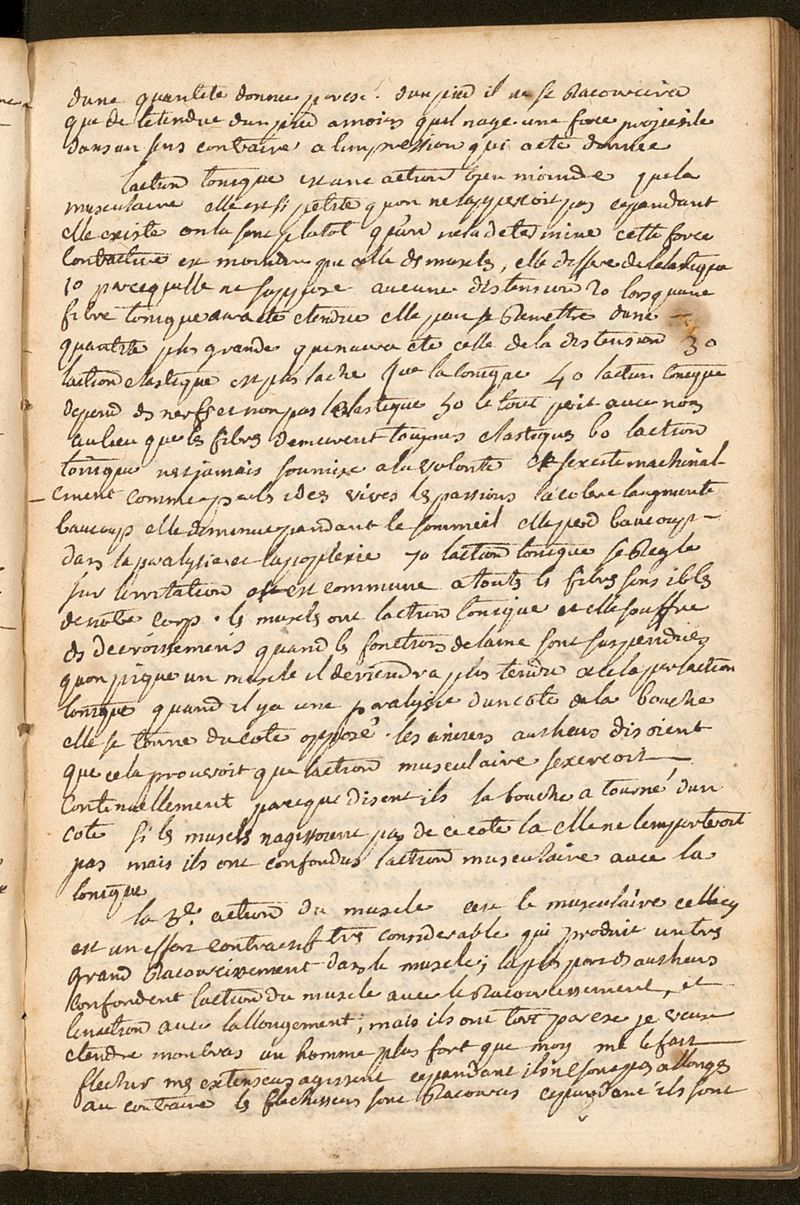 dune quantite donnee par ex: dun pied il ne se Racourcira
que de letendue dun pied a moins quil nage une force projectile
dans un sens contraire a limpression qui a ete donnée
laction tonique est une action bien moindre que la
musculaire elle est si petite quon ne lapperçoit pas cependant
elle existe on la sent plutot qu'on ne la determine cette force
Contractive est moindre que celle des muscles, elle differe de lelastique
1o parcequelle ne suppose aucune distension 2o lorsquune
fibre tonique aura ete etendue elle peut se Remettre dune
quantite plus grande que naura ete celle de la distension 3o
laction elastique est plus lache que la tonique 4o laction tonique
depend des nerfs et non pas lelastique 5o le tout perit avec nous
au lieu que les fibres demeurent toujours elastiques 6o laction
tonique nest jamais soumise a la volonte et sexcite machinal-
ement comme par les idées vives les passions la colere laugmente
baucoup elle diminue pendant le sommeil elle perd baucoup
dans la paralysie et lapoplexie 7o laction tonique se Regle
sur lirritation elle est commune a touts les fibres sensibles
de notre corps. les muscles ont laction tonique et elle souffre
des decroissements quand les fonctions de lame sont suspendues
quon pique un muscle il deviendra plus tendu et cela par laction
tonique quand il y a une paralysie dun cote de la bouche
elle se tourne du cote opposé. les anciens autheurs disoient
que cela prouvoit que laction musculaire sexercoit
Continuellement parceque disent ils la bouche a tourné dun
coté si les muscles nagissoient pas de ce cote la elle ne lemporteroit
pas mais ils ont confondus laction musculaire avec la
tonique
la 3e. action du muscle est le musculaire celle cy
est un effort contractif tres considerable qui produit un tres
grand Racourcissement dans le muscle; la plus part des autheurs
Confondent laction du muscle avec le Racourcissement, et
linaction avec lallongement; mais ils ont tort par ex je veux
etendre mon bras un homme plus fort que moy me le fait
flechir mes extenseurs agissent cependant ils ne sont pas allongés
au contraire les flechisseurs sont Racourcis cependant ils sont